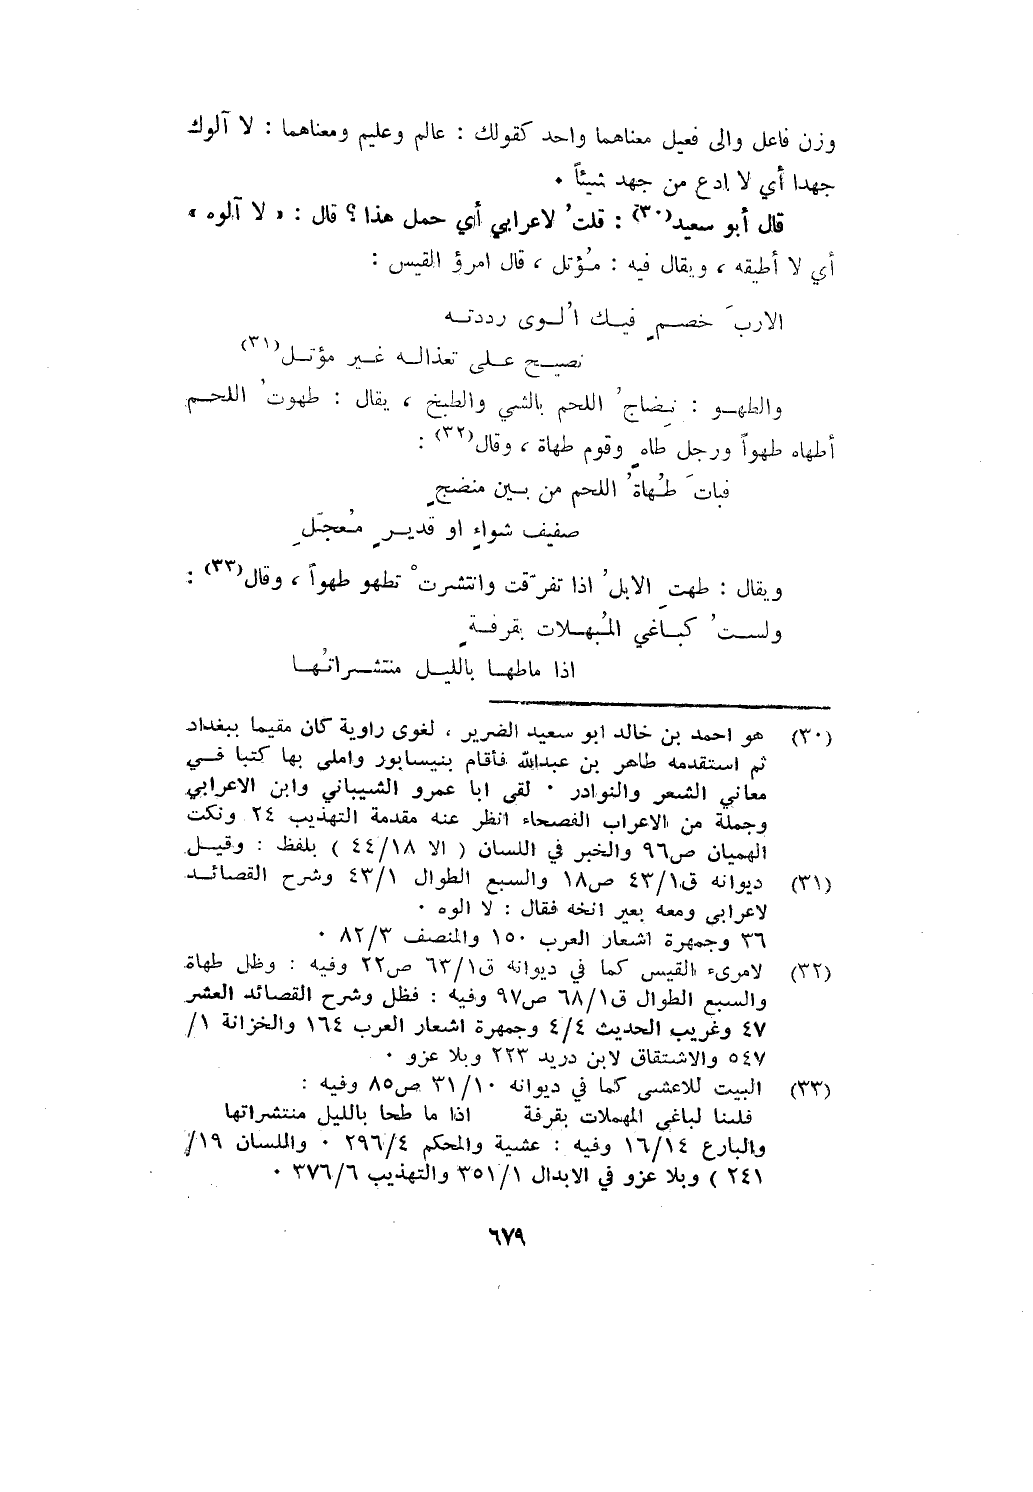 وزن فاعل والى فعيل معناهما واحد كقولك : عالم وعليم ومعناهما : لا آلوك
جهدا أي لا ادع من جهد شيئاً ٠
قال أبو سعيد(٣٠) : قلتُ لاعرابي أي حمل هذا ؟ قال : « لا آلوه »
أي لا أطيقه ، ويقال فيه : مُؤتل ، قال امرؤ القيس :
الاربَ خصـمٍ فيـك اُلـوى رددتـه
نصيـح عـلى تعذالـه غـير مؤتـل(٣١)
والطهـو : نِضاجُ اللحم بالشي والطبخ ، يقال : طهوتُ اللحـم
أطهاه طهواً ورجل طاهٍ وقوم طهاة ، وقال(٣٢) :
فباتَ طُهاةُ اللحم من بـين منضجٍ
صفيف شواءٍ او قديـرٍ مُعجّلِ
ويقال : طهتِ الابلُ اذا تفرّقت وانتشرتْ تطهو طهواً ، وقال(٣٣) :
ولسـتُ كبـاغي المُبهـلات بقرفـةٍ
اذا ماطهـا بالليـل منتشـراتُهـا
(٣٠) هو احمد بن خالد ابو سعيد الضرير ، لغوى راوية كان مقيما ببغداد
ثم استقدمه طاهر بن عبدالله فأقام بنيسابور واملى بها كتبا فـي
معاني الشعر والنوادر ٠ لقى ابا عمرو الشيباني وابن الاعرابي
وجملة من الاعراب الفصحاء انظر عنه مقدمة التهذيب ٢٤ ونكت
الهميان ص٩٦ والخبر في اللسان ( الا ٤٤/١٨ ) بلفظ : وقيـل
(٣١) ديوانه ق٤٣/١ ص١٨ والسبع الطوال ٤٣/١ وشرح القصائـد
لاعرابى ومعه بعير انخه فقال : لا الوه ٠
٣٦ وجمهرة اشعار العرب ١٥٠ والمنصف ٨٢/٣ ٠
(٣٢) لامرىء القيس كما في ديوانه ق٦٣/١ ص٢٢ وفيه : وظل طهاة
والسبع الطوال ق٦٨/١ ص٩٧ وفيه : فظل وشرح القصائد العشر
٤٧ وغريب الحديث ٤/٤ وجمهرة اشعار العرب ١٦٤ والخزانة ١/
٥٤٧ والاشتقاق لابن دريد ٢٢٣ وبلا عزو ٠
(٣٣) البيت للاعشى كما في ديوانه ٣١/١٠ ص٨٥ وفيه :
فلسنا لباغى المهملات بقرفة اذا ما طحا بالليل منتشراتها
والبارع ١٦/١٤ وفيه : عشية والمحكم ٢٩٦/٤ ٠ واللسان ١٩/
٢٤١ ) وبلا عزو في الابدال ٣٥١/١ والتهذيب ٣٧٦/٦ ٠
٦٧٩